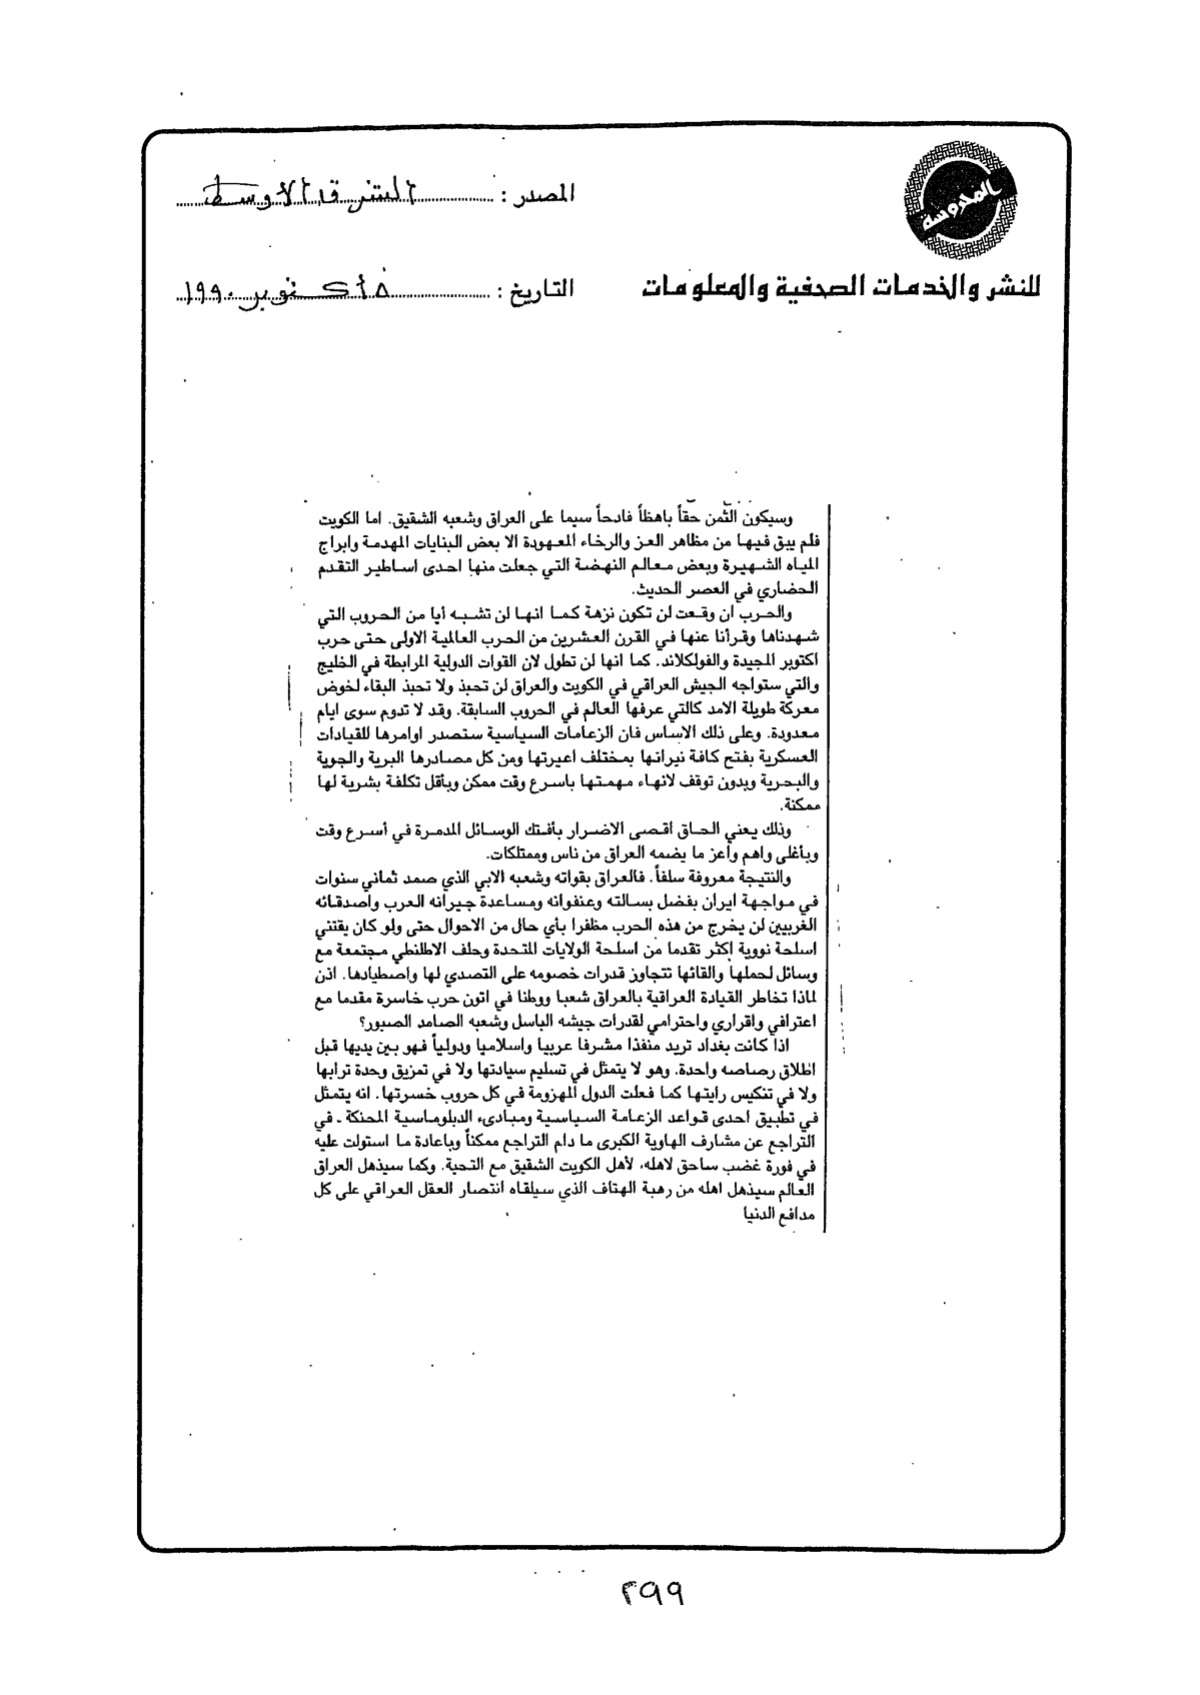 المحروسة
المصدر : الشرق الاوسط
للنشر والخدمات الصحفية والمعلومات
التاريخ : ٥ اكتوبر ١٩٩٠
وسيكون الثمن حقاً باهظاً فادحاً سيما على العراق وشعبه الشقيق. اما الكويت
فلم يبق فيها من مظاهر العز والرخاء المعهودة الا بعض البنايات المهدمة وابراج
المياه الشهيرة وبعض معالم النهضة التي جعلت منها احدى اساطير التقدم
الحضاري في العصر الحديث.
والحرب ان وقعت لن تكون نزهة كما انها لن تشبه أيا من الحروب التي
شهدناها وقرأنا عنها في القرن العشرين من الحرب العالمية الاولى حتى حرب
اكتوبر المجيدة والفولكلاند. كما انها لن تطول لان القوات الدولية المرابطة في الخليج
والتي ستواجه الجيش العراقي في الكويت والعراق لن تحبذ ولا تحبذ البقاء لخوض
معركة طويلة الامد كالتي عرفها العالم في الحروب السابقة. وقد لا تدوم سوى ايام
معدودة. وعلى ذلك الاساس فان الزعامات السياسية ستصدر اوامرها للقيادات
العسكرية بفتح كافة نيرانها بمختلف اعيرتها ومن كل مصادرها البرية والجوية
والبحرية وبدون توقف لانهاء مهمتها باسرع وقت ممكن وبأقل تكلفة بشرية لها
ممكنة.
وذلك يعني الحاق اقصى الاضرار بأفتك الوسائل المدمرة في أسرع وقت
وبأغلى واهم وأعز ما يضمه العراق من ناس وممتلكات.
والنتيجة معروفة سلفاً. فالعراق بقواته وشعبه الابي الذي صمد ثماني سنوات
في مواجهة ايران بفضل بسالته وعنفوانه ومساعدة جيرانه العرب واصدقائه
الغربيين لن يخرج من هذه الحرب مظفرا بأي حال من الاحوال حتى ولو كان يقتني
اسلحة نووية اكثر تقدما من اسلحة الولايات المتحدة وحلف الاطلنطي مجتمعة مع
وسائل لحملها والقائها تتجاوز قدرات خصومه على التصدي لها واصطيادها. اذن
لماذا تخاطر القيادة العراقية بالعراق شعبا ووطنا في اتون حرب خاسرة مقدما مع
اعترافي واقراري واحترامي لقدرات جيشه الباسل وشعبه الصامد الصبور؟
اذا كانت بغداد تريد منفذا مشرفا عربيا واسلاميا ودولياً فهو بين يديها قبل
اطلاق رصاصه واحدة. وهو لا يتمثل في تسليم سيادتها ولا في تمزيق وحدة ترابها
ولا في تنكيس رايتها كما فعلت الدول المهزومة في كل حروب خسرتها. انه يتمثل
في تطبيق احدى قواعد الزعامة السياسية ومبادىء الدبلوماسية المحنكة ـ في
التراجع عن مشارف الهاوية الكبرى ما دام التراجع ممكناً وباعادة ما استولت عليه
في فورة غضب ساحق لاهله، لأهل الكويت الشقيق مع التحية. وكما سيذهل العراق
العالم سيذهل اهله من رهبة الهتاف الذي سيلقاه انتصار العقل العراقي على كل
مدافع الدنيا
٢٩٩